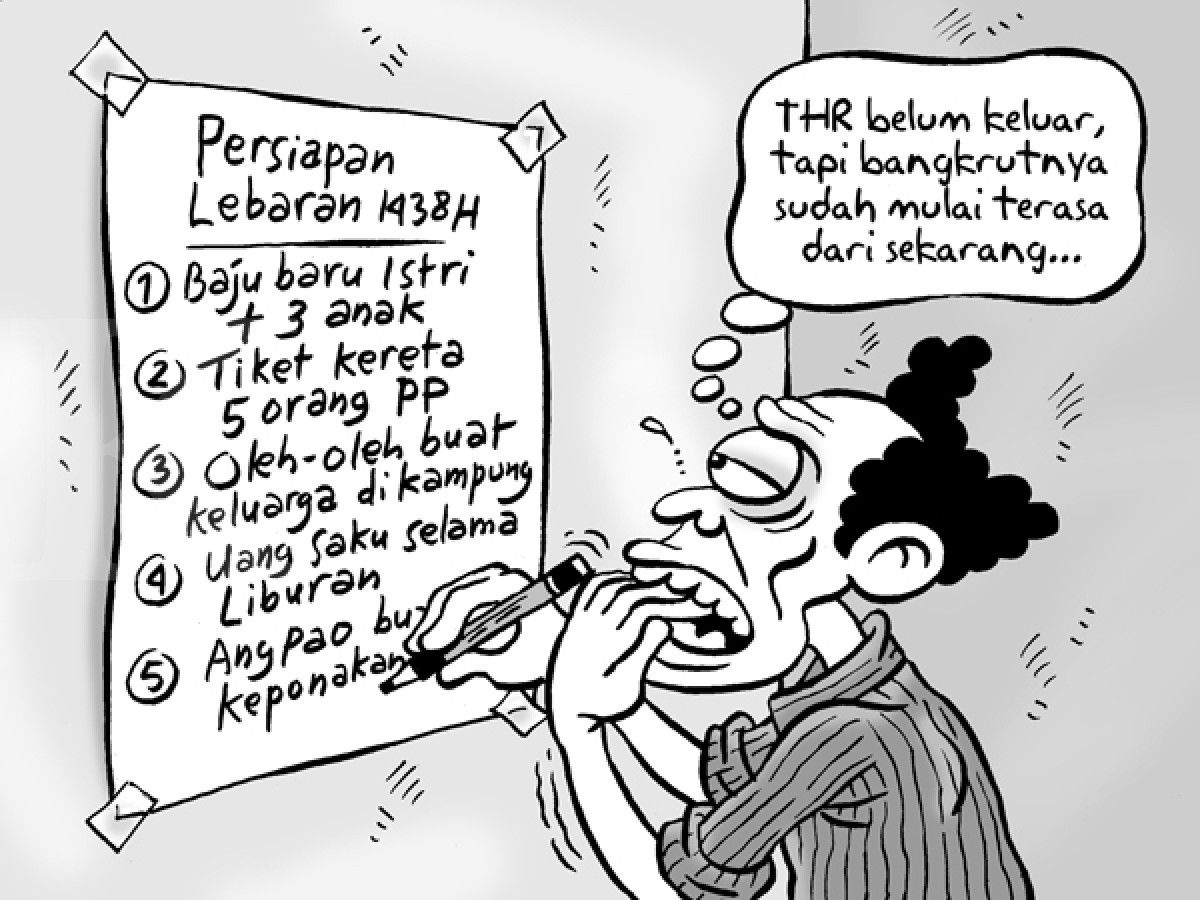 Persiapan
Lebaran 1438H
1 Baju baru Istri
+ 3 anak
2 Tiket kereta
5 orang PP
3 Oleh-oleh buat
keluarga di kampung
4 Uang saku selama
Liburan
5 Angpao bu
keponakan
THR belum keluar,
tapi bangkrutnya
sudah mulai terasa
dari sekarang...